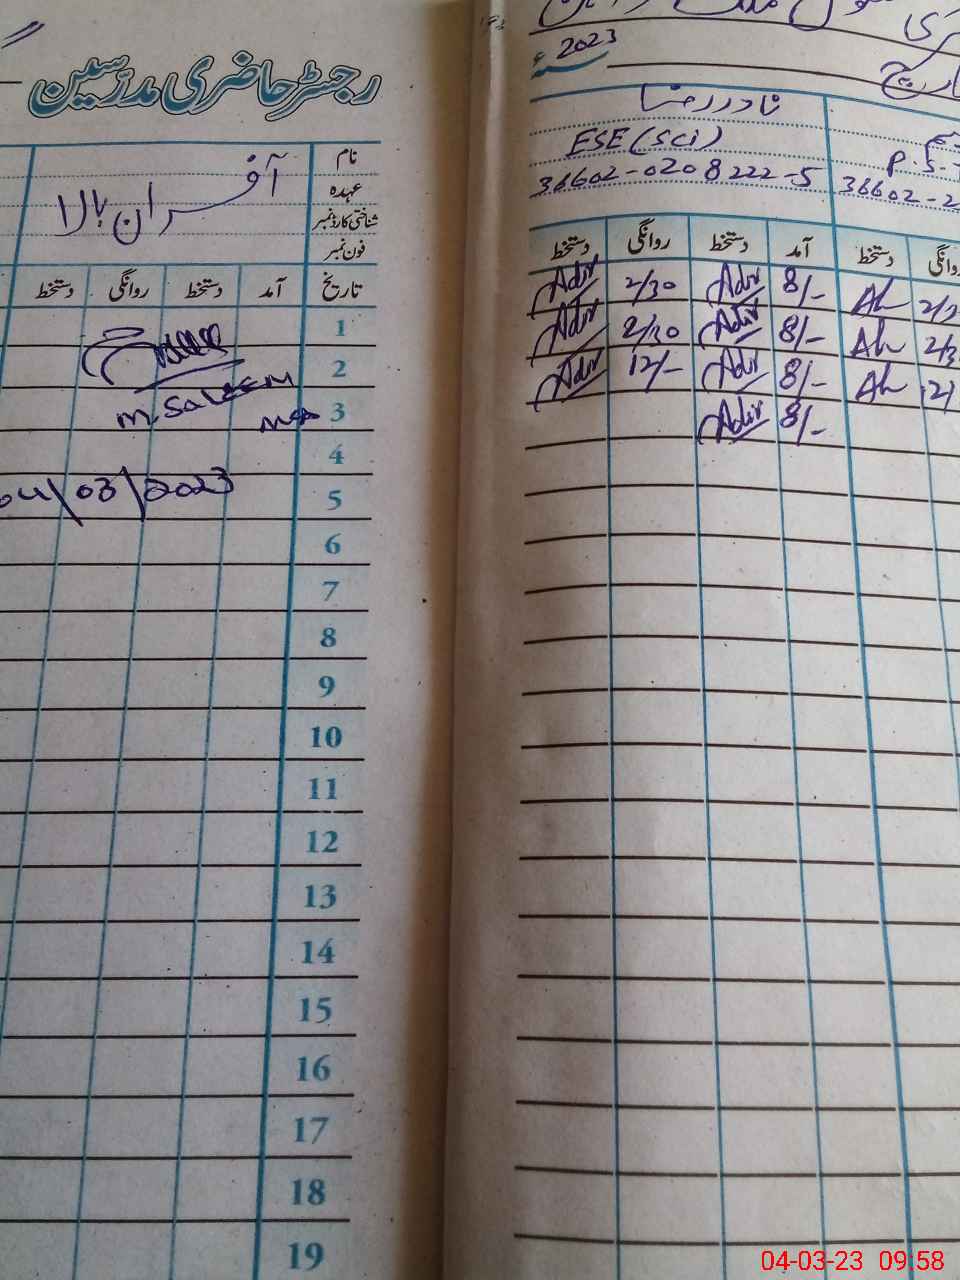 رجسٹر حاضری مدرسین
نام
عہدہ
شناختی کارڈ نمبر
فون نمبر
آفسران بالا
تاریخ آمد دستخط روانگی دستخط
1
2
M. Saleem
3
4
04/03/2023
5
6
7
8
9
10
11
12
13
14
15
16
17
18
19
2023ء
نادر رضا
ESE (Sci) P.S.T
36602-0208222-5 36602-2
روانگی دستخط آمد دستخط روانگی دستخط
2/ Ah 8/- Adir 2/30 Adir
2/3 Ah 8/- Adir 2/30 Adir
12/ Ah 8/- Adir 12/- Adir
8/- Adir
04-03-23 09:58